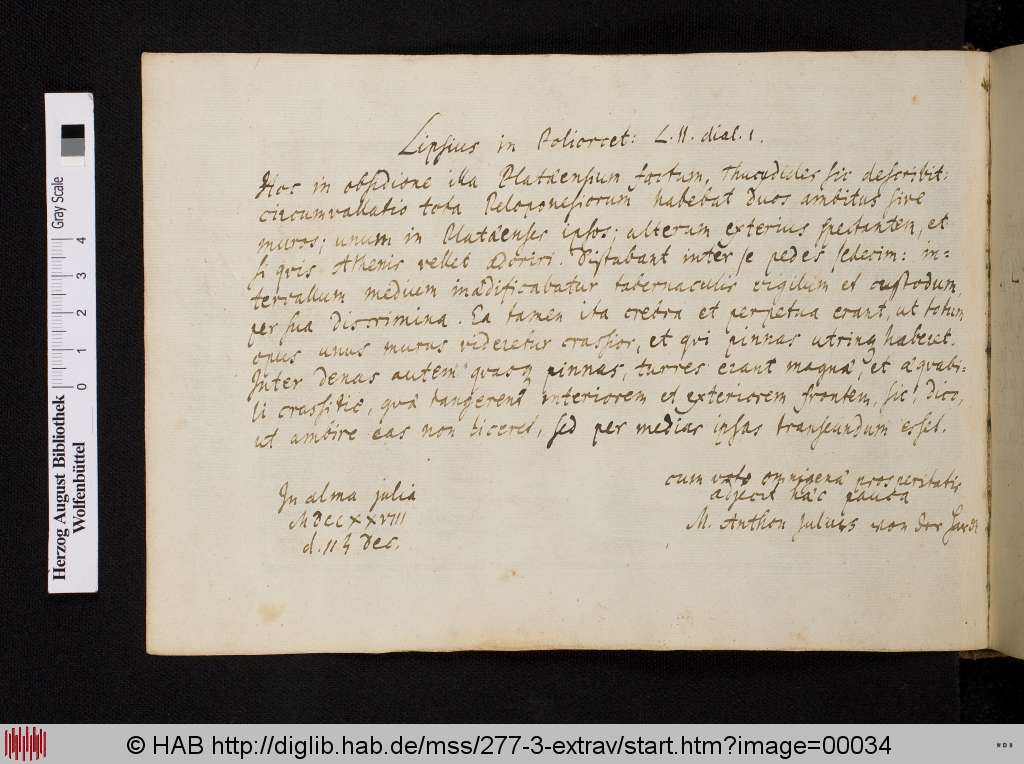 Lipsius in Poliorcet: L. II. dial. 1.
Hoc in obsidione illa Plataeensium factum, Thucydides sic describit:
circumvallatio tota Peloponesiorum habebat duos ambitus sive
muros; unum in Plataenses ipsos; alterum exterius spectantem, et
si qvis Athenis vellet adoriri. Distabant inter se pedes sedecim: in=
tervallum medium inaedificabatur tabernaculis vigilum et custodum,
per sua discrimina. Ea tamen ita crebra et perpetua erant, ut totum
opus unus murus videretur crassior, et qvi pinnas utrinq haberet.
Inter denas autem qvasq pinnas, turres erant magnae, et aeqvabi=
li crassitie, qvae tangerent interiorem et exteriorem frontem, sic, dico,
ut ambire eas non liceret, sed per medias ipsas transeundum esset.
In alma Julia
MDCCXXVIII
d. 11 Dec.
cum voto omnigenae prosperitatis
adjecit haec pauca
M. Anthon Julius von der Hardt
Herzog August Bibliothek
Wolfenbüttel
Gray Scale
0 1 2 3 4
© HAB http://diglib.hab.de/mss/277-3-extrav/start.htm?image=00034
WDB